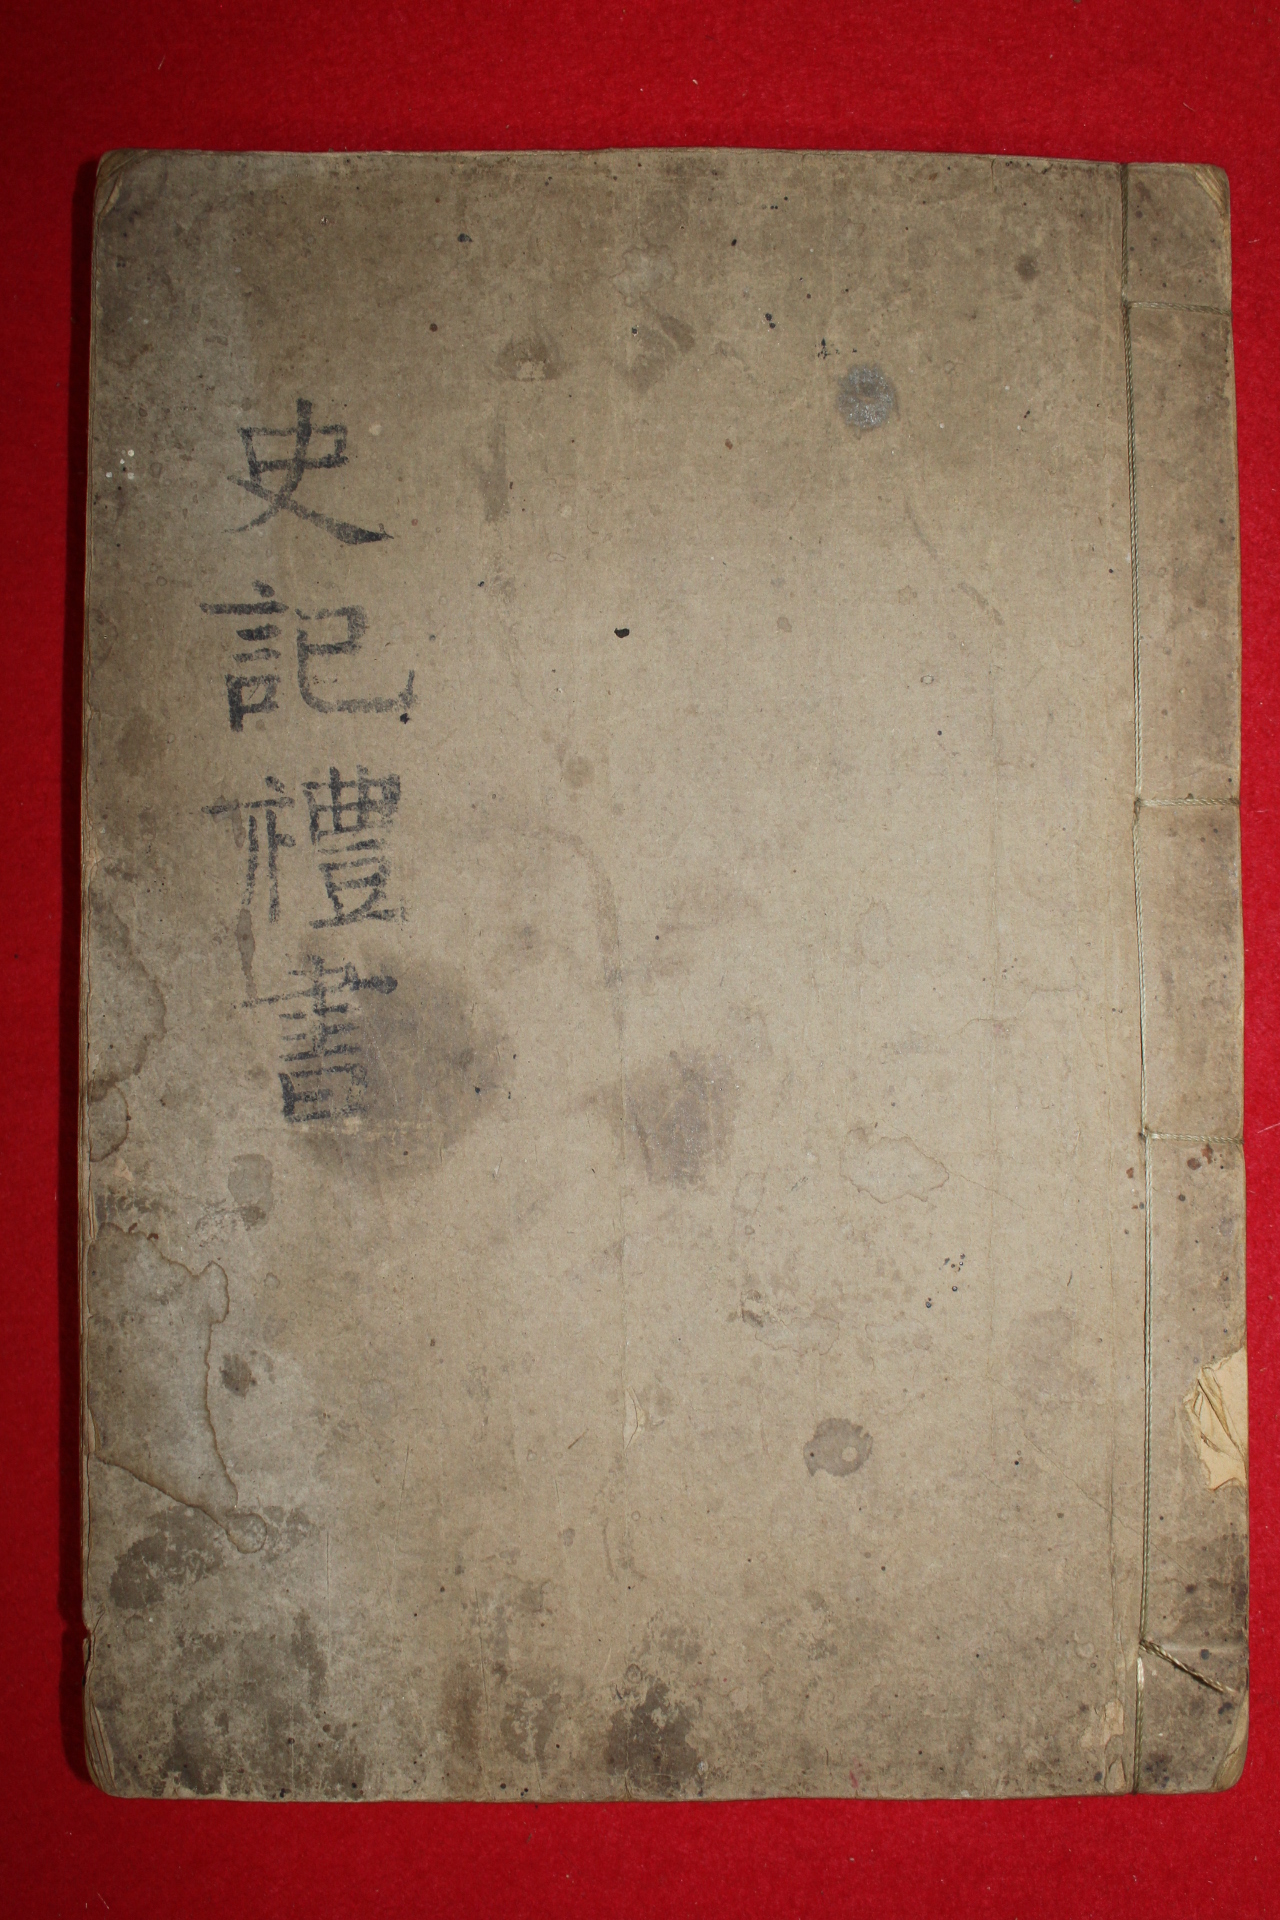 史記禮書